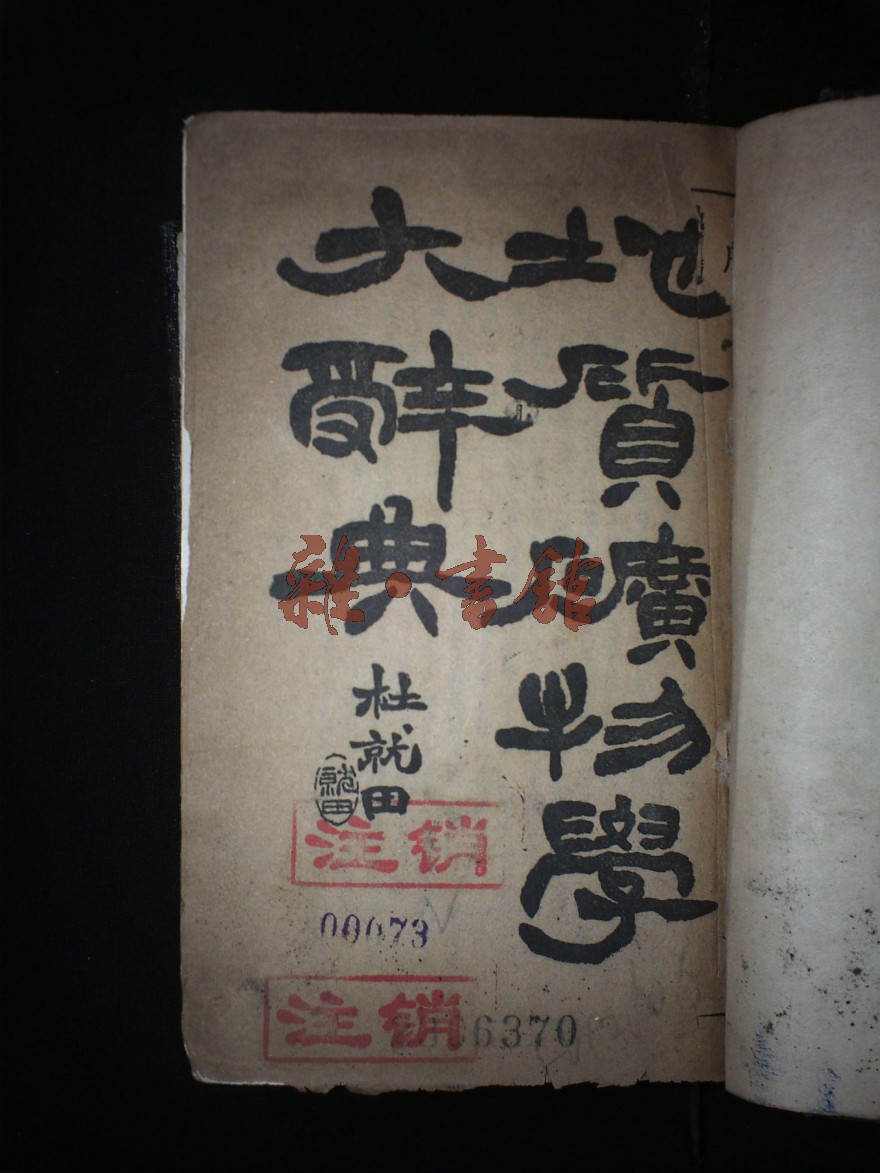 地質礦物學
大辭典
杜就田
就田
雜·書館
注销
00073
注销
6370